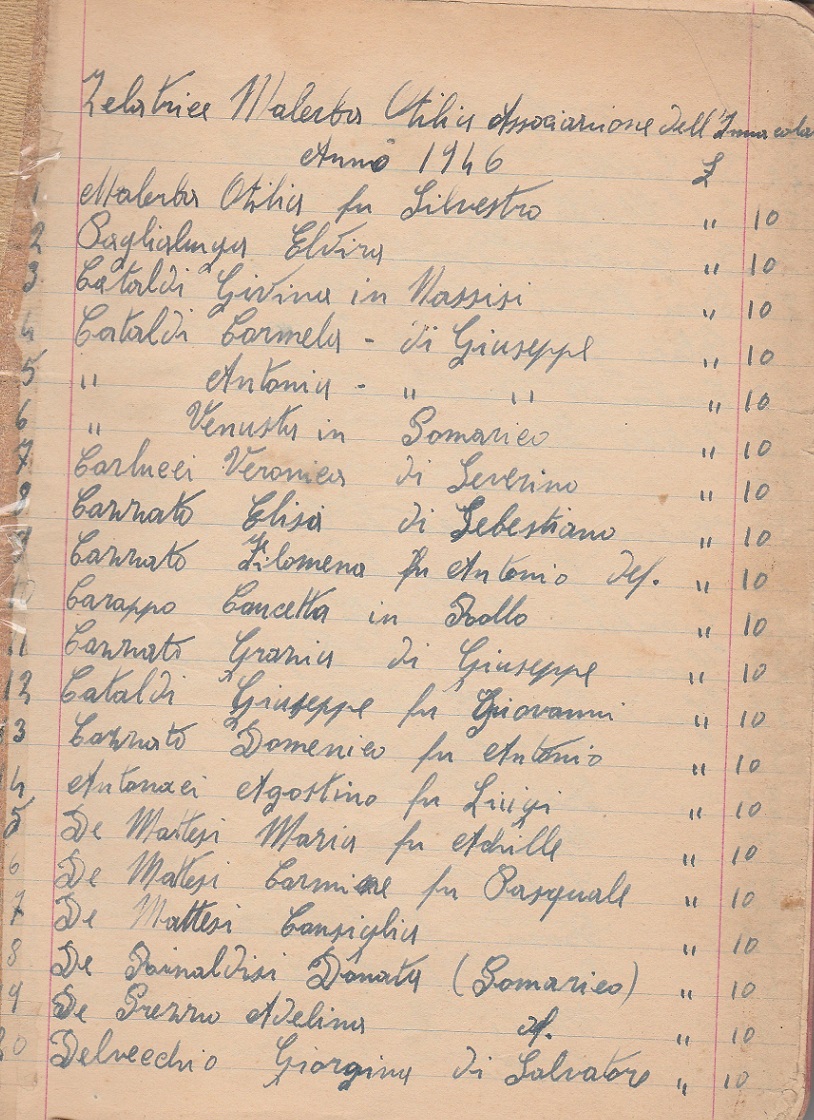 Zelatrice Malerba Otilia Associazione dell'Immacola
Anno 1946 £
1 Malerba Otilia fu Silvestro " 10
2 Paglialunga Elvira " 10
3 Cataldi Givina in Massisi " 10
4 Cataldi Carmela - di Giuseppe " 10
5 " Antonia - " " " 10
6 " Venusta in Gomarico " 10
7 Carlucci Veronica di Severino " 10
8 Cazzato Elisa di Sebestiano " 10
9 Cazzato Filomena fu Antonio def. " 10
10 Carappo Concetta in Rollo " 10
11 Cazzato Grazia di Giuseppe " 10
12 Cataldi Giuseppe fu Giovanni " 10
13 Cazzato Domenico fu Antonio " 10
4 Antonaci Agostino fu Luigi " 10
5 De Mattesi Maria fu Achille " 10
6 De Mattesi Carmine fu Pasquale " 10
7 De Mattesi Consiglia " 10
8 De Rinaldisi Donata (Gomarico) " 10
19 De Prezzo Adelina " 10
20 Delvecchio Giorgina di Salvatore " 10